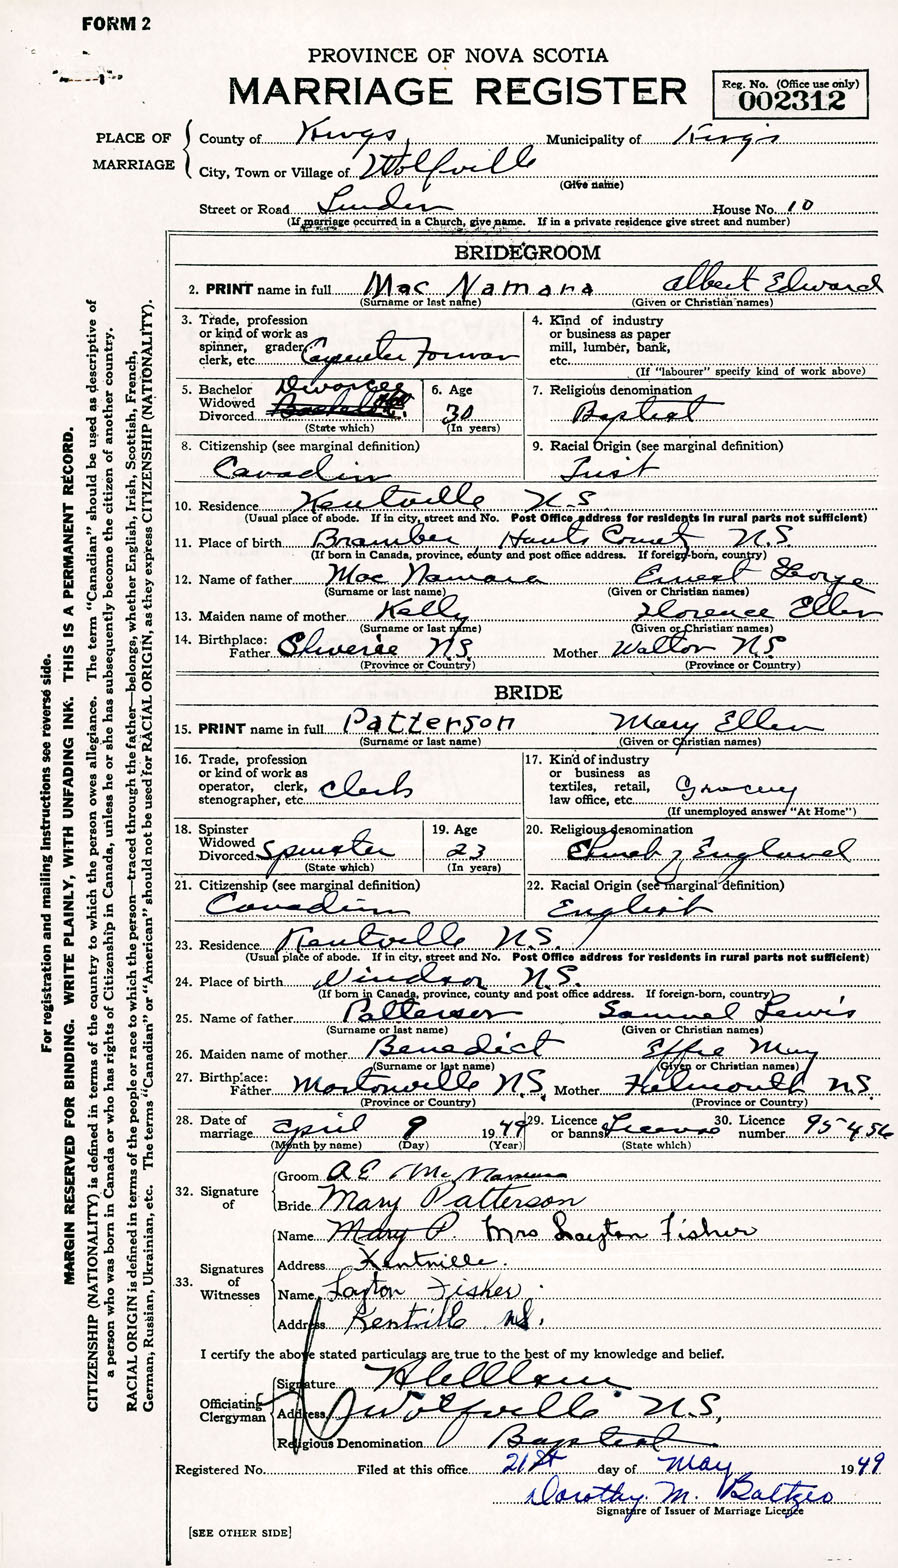 FORM 2
PROVINCE OF NOVA SCOTIA
MARRIAGE REGISTER
Reg. No. (Office use only)
002312
PLACE OF MARRIAGE
County of Kings Municipality of Kings
City, Town or Village of Wolfville
(Give name)
Street or Road Linden House No. 10
(If marriage occurred in a Church, give name. If in a private residence give street and number)
BRIDEGROOM
2. PRINT name in full Mac Namara Albert Edward
(Surname or last name) (Given or Christian names)
3. Trade, profession or kind of work as spinner, grader, clerk, etc. Carpenter Forman
4. Kind of industry or business as paper mill, lumber, bank, etc.
(If "labourer" specify kind of work above)
5. Bachelor Widowed Divorced Divorcee
(State which)
6. Age 30
(In years)
7. Religious denomination Baptist
8. Citizenship (see marginal definition) Canadian
9. Racial Origin (see marginal definition)
10. Residence Kentville N.S
(Usual place of abode. If in city, street and No. Post Office address for residents in rural parts not sufficient)
11. Place of birth Bramber Hants County N.S
(If born in Canada, province, county and post office address. If foreign-born, country)
12. Name of father Mac Namara Ernest George
(Surname or last name) (Given or Christian names)
13. Maiden name of mother Kelly Florence Ellen
(Surname or last name) (Given or Christian names)
14. Birthplace: Father Cheverie N.S. Mother Walton N.S.
(Province or Country) (Province or Country)
BRIDE
15. PRINT name in full Patterson Mary Ellen
(Surname or last name) (Given or Christian names)
16. Trade, profession or kind of work as operator, clerk, stenographer, etc. Clerk
17. Kind of industry or business as textiles, retail, law office, etc. Grocery
(If unemployed answer "At Home")
18. Spinster Widowed Divorced Spinster
(State which)
19. Age 23
(In years)
20. Religious denomination Church of England
21. Citizenship (see marginal definition) Canadian
22. Racial Origin (see marginal definition) English
23. Residence Kentville N.S.
(Usual place of abode. If in city, street and No. Post Office address for residents in rural parts not sufficient)
24. Place of birth Windsor N.S.
(If born in Canada, province, county and post office address. If foreign-born, country)
25. Name of father Patterson Samuel Lewis
(Surname or last name) (Given or Christian names)
26. Maiden name of mother Benedict Effie May
(Surname or last name) (Given or Christian names)
27. Birthplace: Father Mortonville N.S. Mother Falmouth N.S.
(Province or Country) (Province or Country)
28. Date of marriage April 9 1949
(Month by name) (Day) (Year)
29. Licence or banns License
(State which)
30. Licence number 95456
32. Signature of
Groom A E McNamara
Bride Mary Patterson
33. Signatures of Witnesses
Name Mary P. Mrs Layton Fisher
Address Kentville.
Name Layton Fisher.
Address Kentville NS.
I certify the above stated particulars are true to the best of my knowledge and belief.
Officiating Clergyman
Signature
Address Wolfville N.S.
Religious Denomination Baptist
Registered No. Filed at this office 21st day of May 1949
Dorothy M. Baltzer
Signature of Issuer of Marriage Licence
[SEE OTHER SIDE]
For registration and mailing instructions see reverse side.
MARGIN RESERVED FOR BINDING. WRITE PLAINLY, WITH UNFADING INK. THIS IS A PERMANENT RECORD.
CITIZENSHIP (NATIONALITY) is defined in terms of the country to which the person owes allegiance. The term "Canadian" should be used as descriptive of
a person who was born in Canada or who has rights of Citizenship in Canada, unless he or she has subsequently become the citizen of another country.
RACIAL ORIGIN is defined in terms of the people or race to which the person—traced through the father—belongs, whether English, Irish, Scottish, French,
German, Russian, Ukrainian, etc. The terms "Canadian" or "American" should not be used for RACIAL ORIGIN, as they express CITIZENSHIP (NATIONALITY).